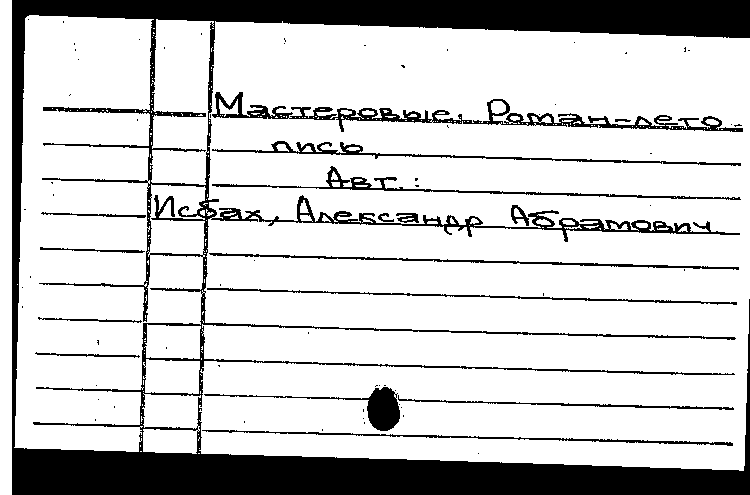 Мастеровые. Роман-лето-
пись,
Авт.:
Исбах, Александр Абрамович